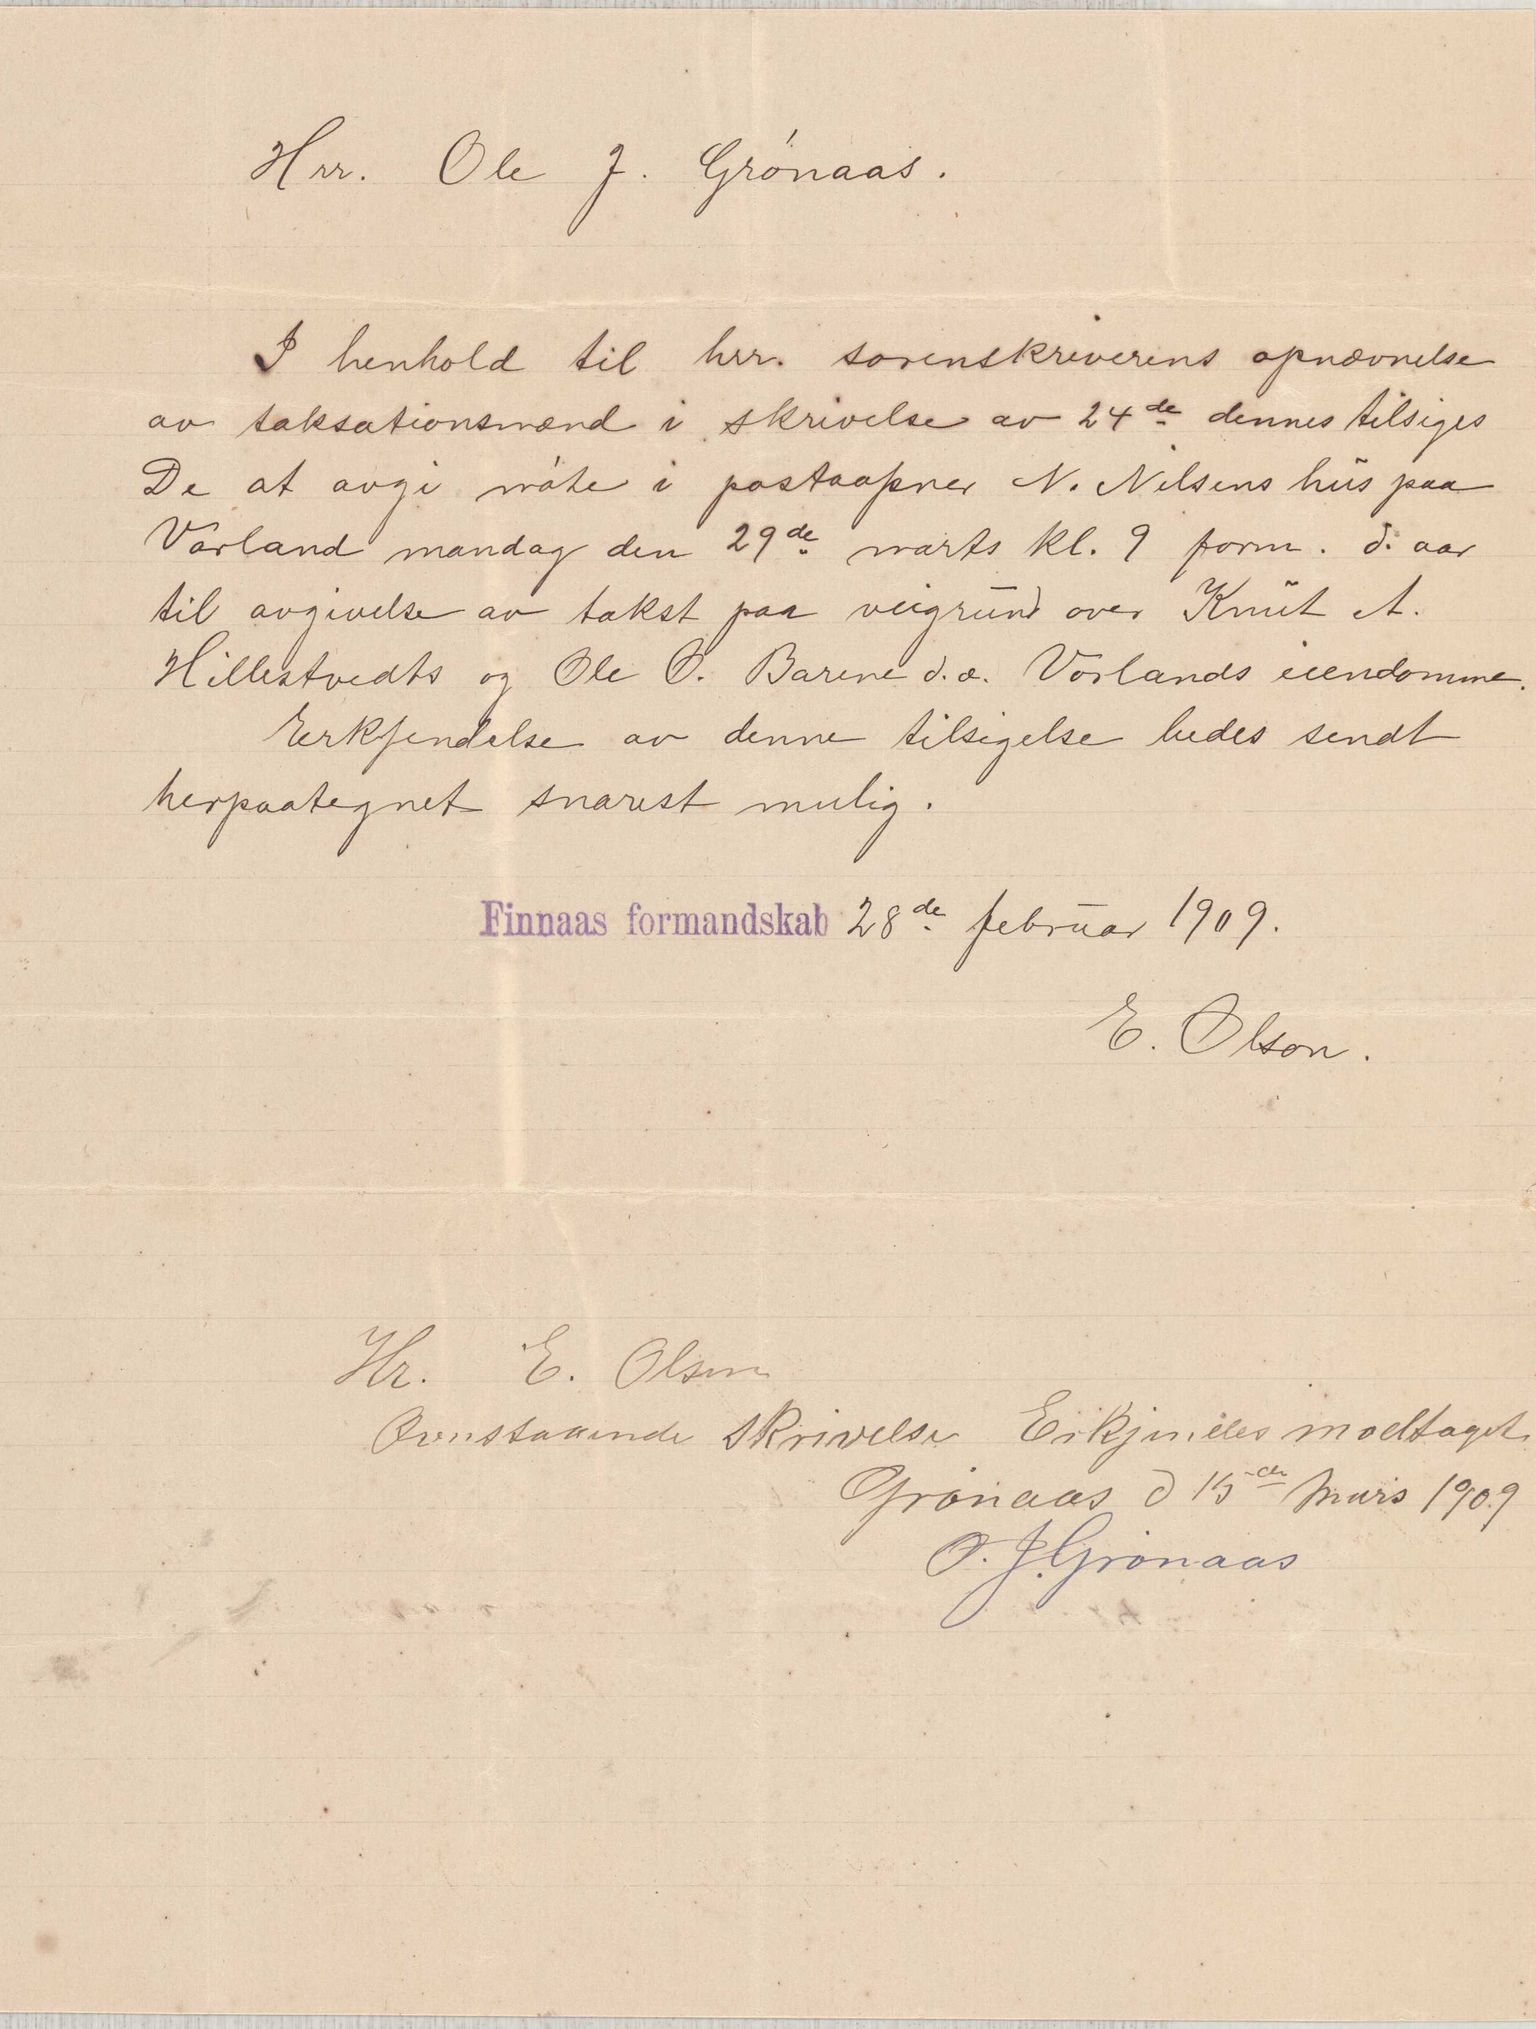 Hrr. Ole J. Grónaas.
I henhold til hrr. sorenskriverens opnævnelse
av taksationsmænd i skrivelse av 24de dennes tilsiges
De at avgi móte i postaapner N. Nilsens hus paa
Vorland mandag den 29de marts kl. 9 form. d. aar
til avgivelse av takst paa veigrund over Knut A.
Hillestvedts og Ole O. Barene d.æ. Vorlands eiendomme.
Erkjendelse av denne tilsigelse bedes sendt
herpaategnet snarest mulig.
Finnaas formandskab 28de februar 1909.
E. Olson.
Hr. E. Olson
Ovenstaaende skrivelse Erkjendes modtaget
Grönaas d 15de Mars 1909
O. J. Grönaas